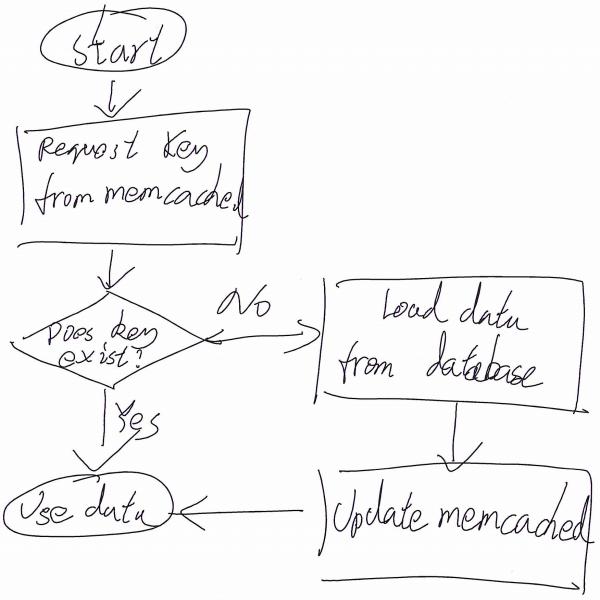 Start
Request Key
from memcached
Does key
exist?
No
Load data
from database
Yes
Use data
Update memcached